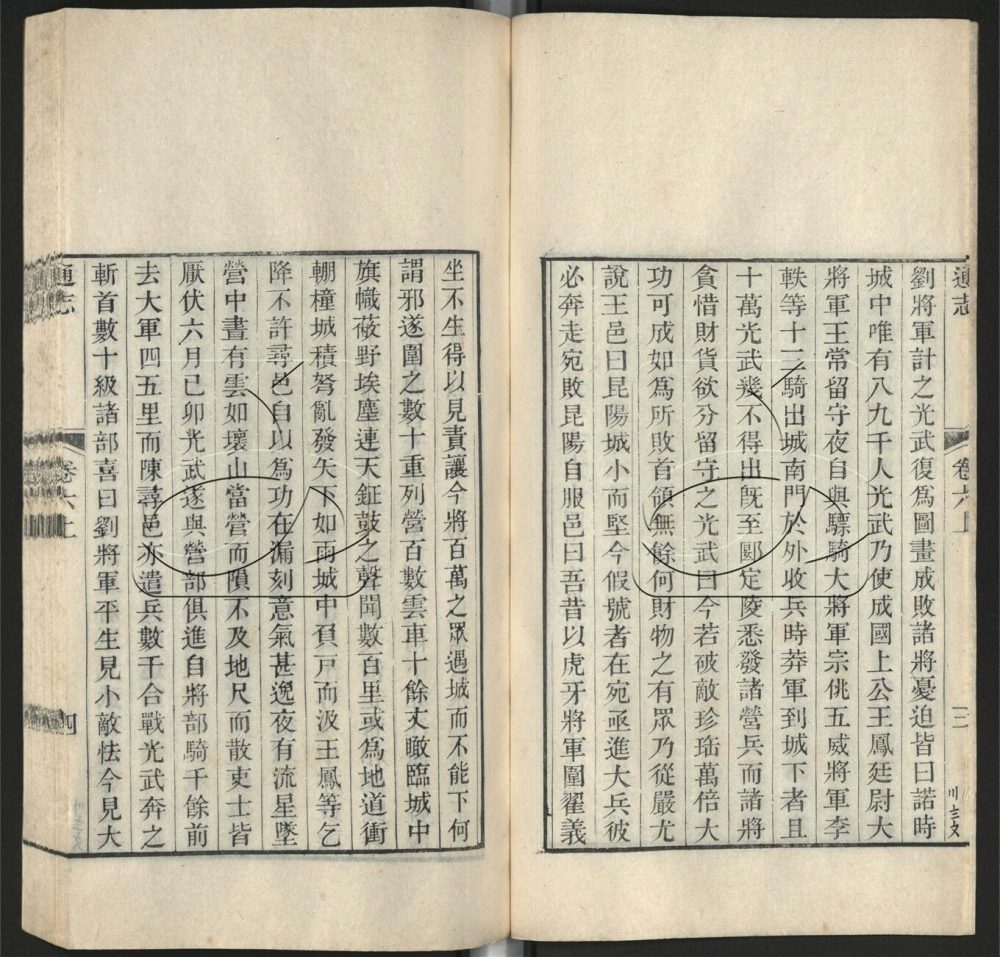 通志
卷六上
三
川三文
劉將軍計之光武復為圖畫成敗諸將憂迫皆曰諾時
城中唯有八九千人光武乃使成國上公王鳳廷尉大
將軍王常留守夜自與驃騎大將軍宗佻五威將軍李
軼等十三騎出城南門於外收兵時莽軍到城下者且
十萬光武幾不得出既至郾定陵悉發諸營兵而諸將
貪惜財貨欲分留守之光武曰今若破敵珍珤萬倍大
功可成如為所敗首領無餘何財物之有眾乃從嚴尤
說王邑曰昆陽城小而堅今假號者在宛亟進大兵彼
必奔走宛敗昆陽自服邑曰吾昔以虎牙將軍圍翟義
坐不生得以見責讓今將百萬之眾遇城而不能下何
謂邪遂圍之數十重列營百數雲車十餘丈瞰臨城中
旗幟蔽野埃塵連天鉦鼓之聲聞數百里或為地道衝
輣橦城積弩亂發矢下如雨城中負戸而汲王鳳等乞
降不許尋邑自以為功在漏刻意氣甚逸夜有流星墜
營中晝有雲如壞山當營而隕不及地尺而散吏士皆
厭伏六月己卯光武遂與營部俱進自將部騎千餘前
去大軍四五里而陳尋邑亦遣兵數千合戰光武奔之
斬首數十級諸部喜曰劉將軍平生見小敵怯今見大
通志
卷六上
四